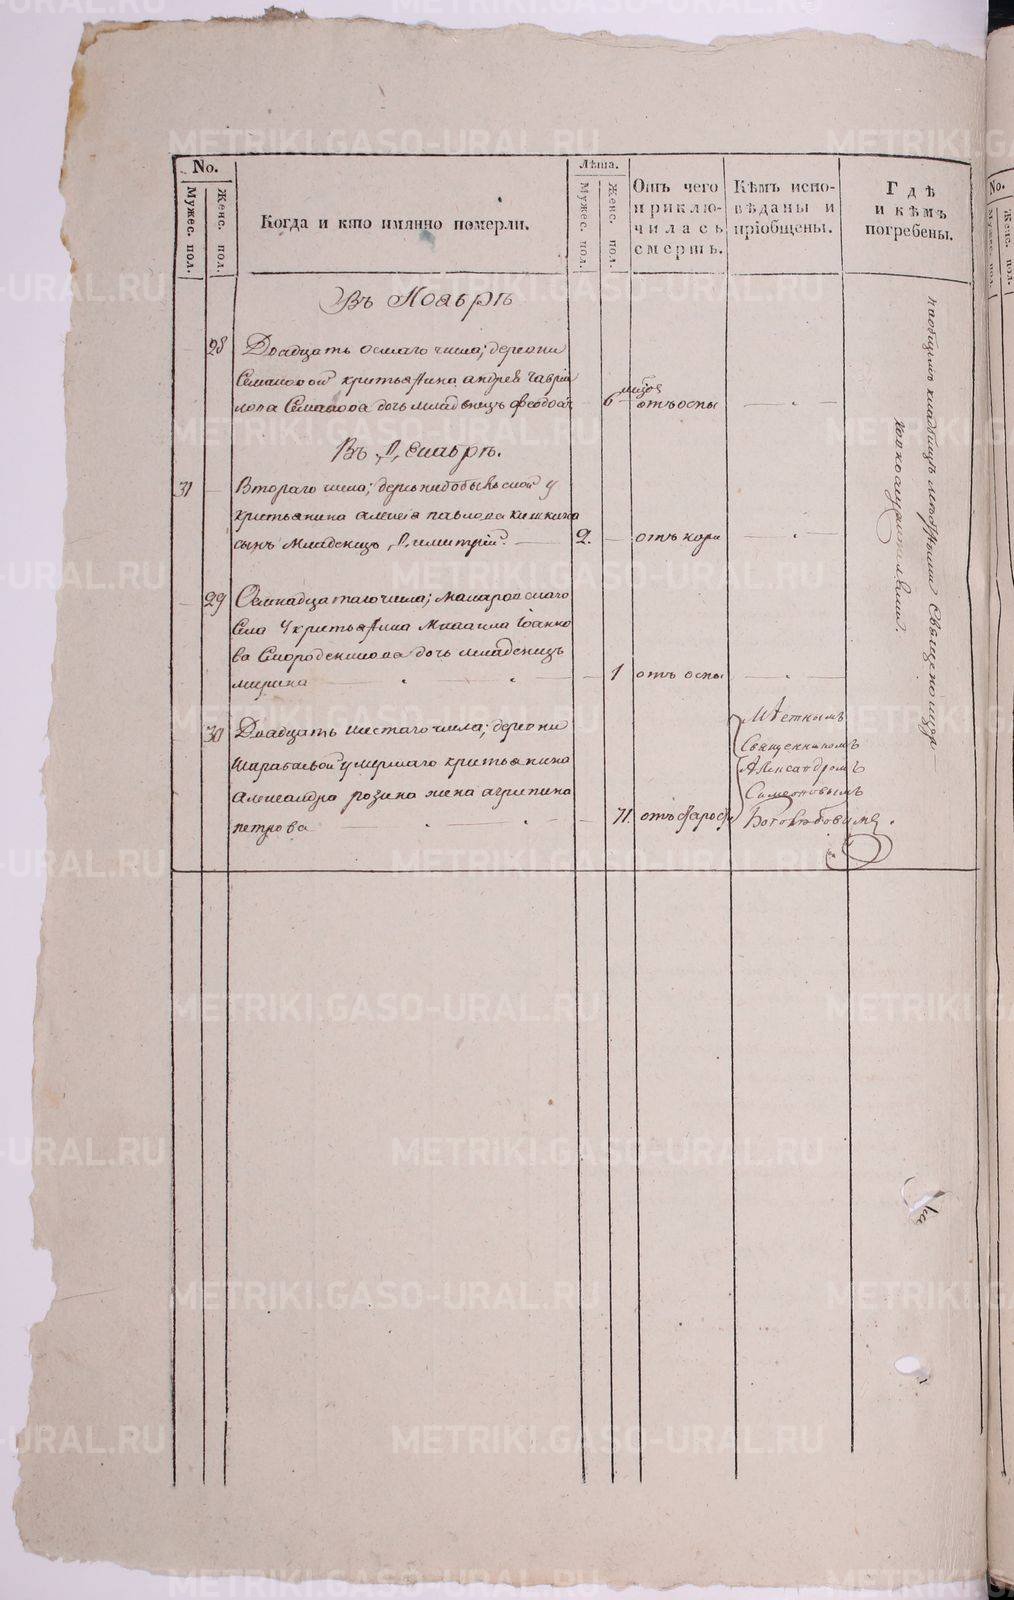 METRIKI.GASO-URAL.RU
No.
Мужес. пол.
Женс. пол.
Когда и кто имянно померли.
Лѣта.
Мужес. пол.
Женс. пол.
Отъ чего
приклю-
чилась
смерть.
Кѣмъ испо-
вѣданы и
пріобщены.
Гдѣ
и кѣмъ
погребены.
Въ Ноабрѣ
28 Двадцать осмаго числа; деревни
Семановой крестьянина андрея гаврі
лова Семанова дочь младенецъ Феодосія 6 отъ оспы
Въ Декабрѣ.
31 Втораго числа; деревни у
крестьянина алексея павлова кишкина
сынъ Младенецъ Димитрій. 2. отъ кори
29 Семнадцатаго числа; Макаровскаго
Села У крестьянина Михаила Іоанно
ва Смороденикова дочь младенецъ
мирина 1 отъ оспы
30 Двадцать шестаго числа; деревни
умершаго крестьянина
Александра розина жена агрипина
петрова 71 отъ старости
Мѣстнымъ
Священникомъ
Александромъ
Симеоновымъ
наобщемъ кладбищѣ Священноцерк-
No.
Мужес. пол.
Женс. пол.